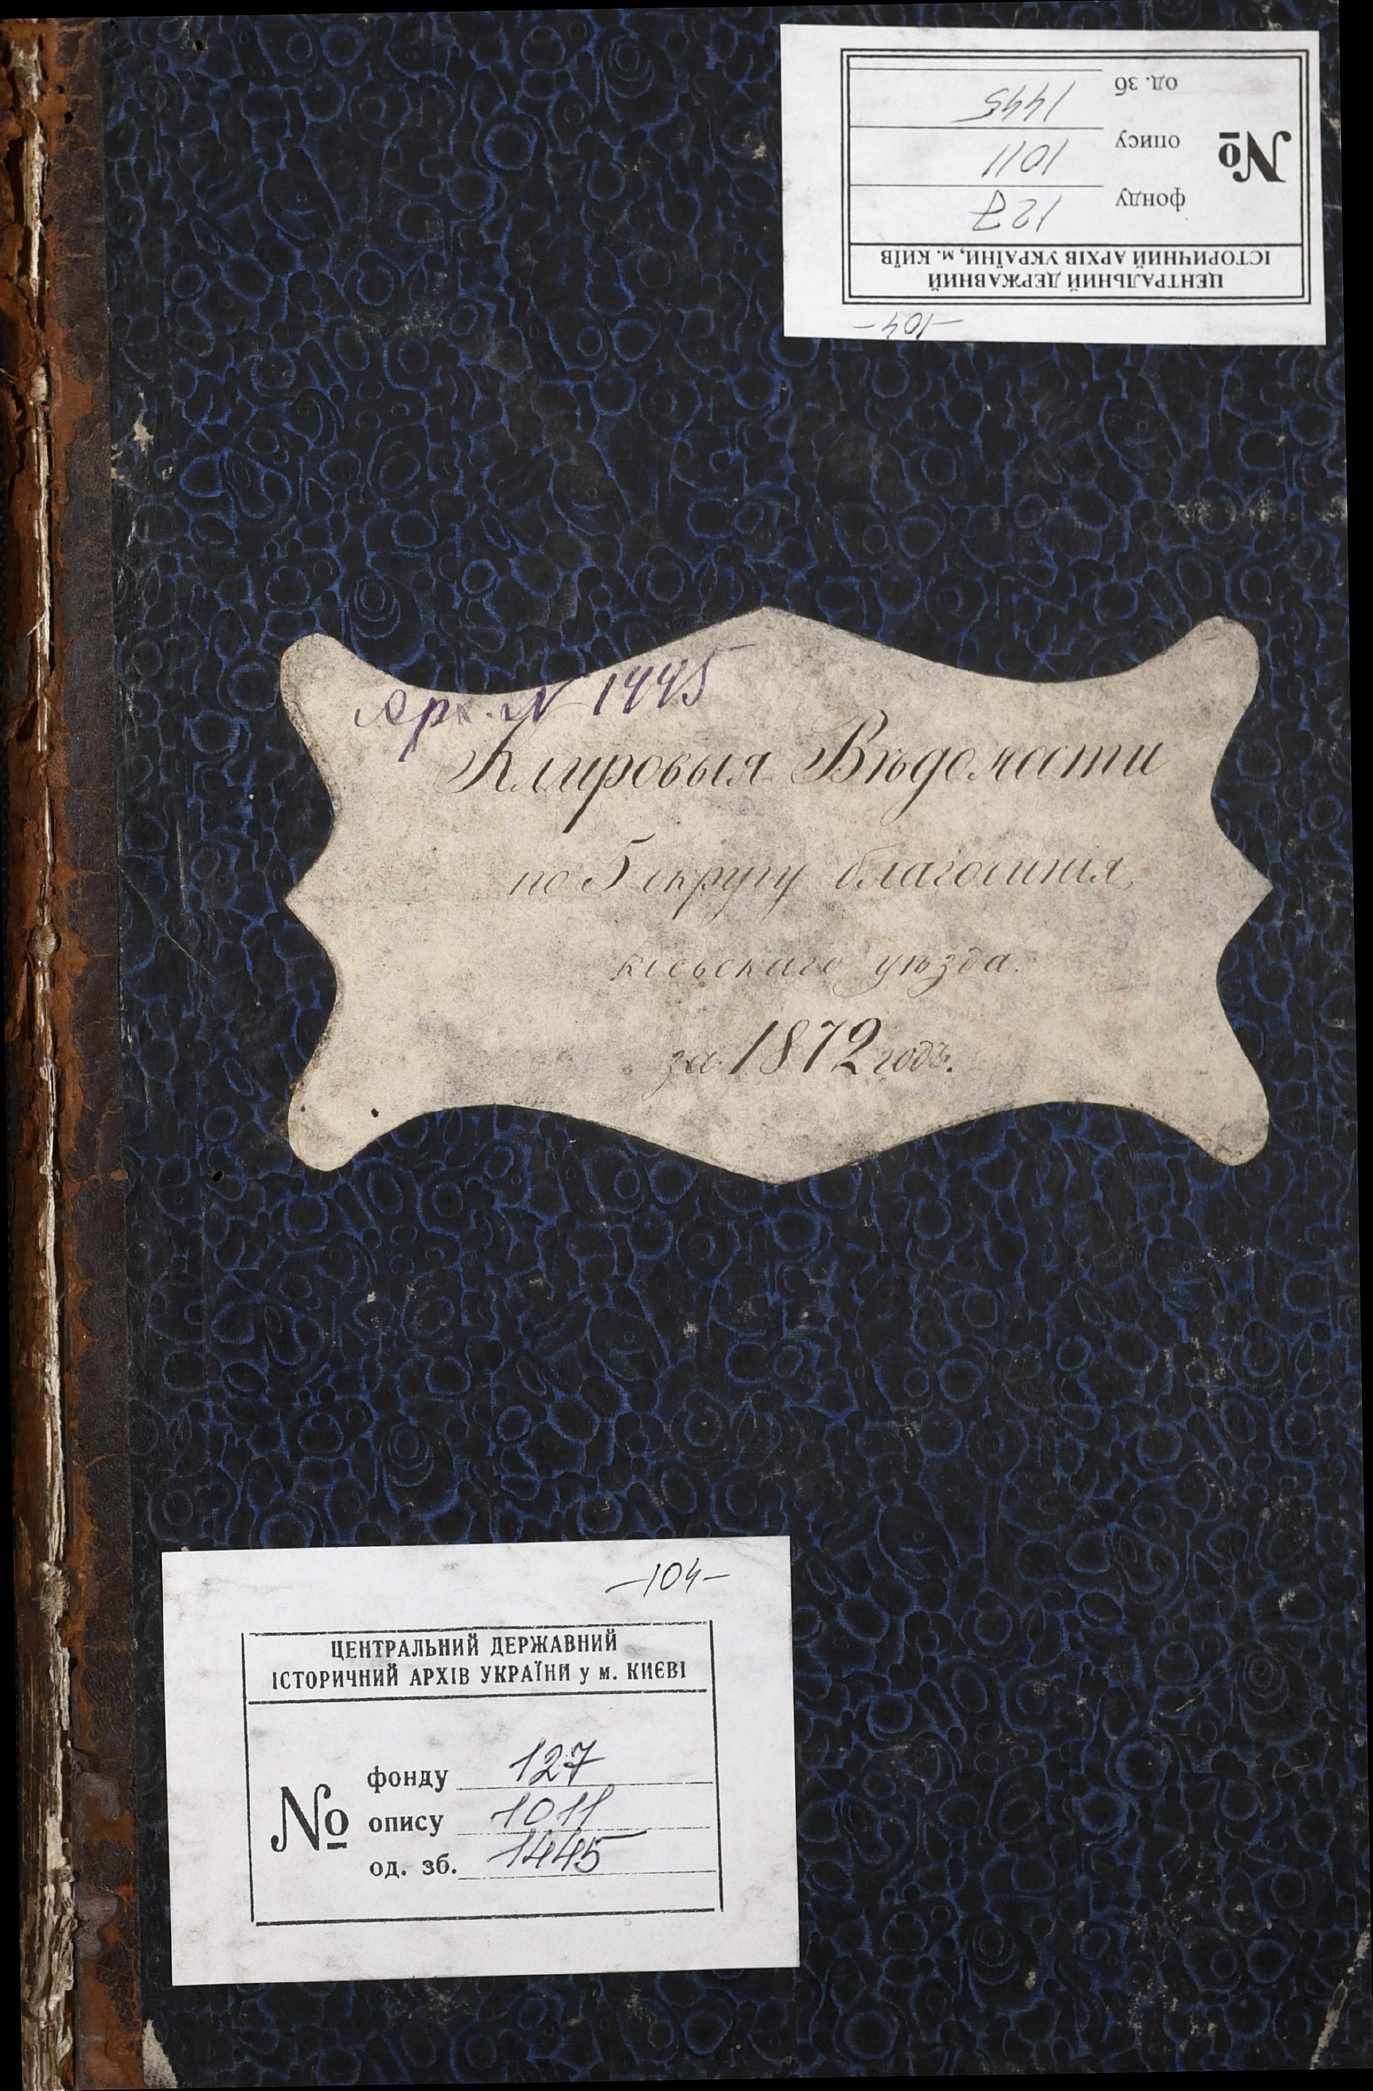 ЦЕНТРАЛЬНИЙ ДЕРЖАВНИЙ
ІСТОРИЧНИЙ АРХІВ УКРАЇНИ, м. КИЇВ
№
фонду 127
опису 1011
од. зб 1445
-104-
Арх. N 1445
Клировыя Вѣдомости
по 5 округу благочинія
кіевскаго уѣзда.
за 1872 годъ.
-104-
ЦЕНТРАЛЬНИЙ ДЕРЖАВНИЙ
ІСТОРИЧНИЙ АРХІВ УКРАЇНИ у м. КИЄВІ
№
фонду 127
опису 1011
од. зб. 1445